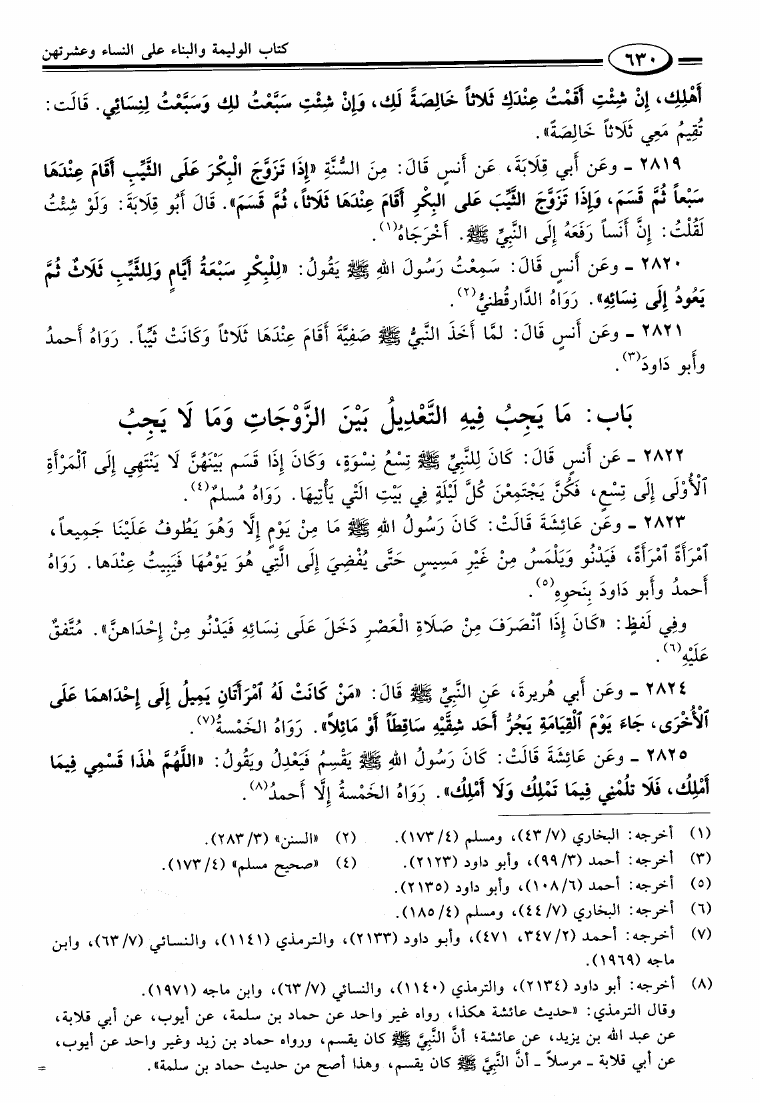 كتاب الوليمة والبناء على النساء وعشرتهن
٦٣٠
أَهْلِكِ، إِنْ شِئْتِ أَقَمْتُ عِنْدَكِ ثَلاثاً خَالِصَةً لَكِ، وَإِنْ شِئْتِ سَبَّعْتُ لكِ وَسَبَّعْتُ لِنِسَائِي. قَالَت:
تُقِيمُ مَعِي ثَلَاثاً خَالِصَةً».
٢٨١٩ - وعَن أَبي قِلَابَةَ، عَن أَنسٍ قَالَ: مِنَ السُّنَّةِ «إِذَا تَزَوَّجَ الْبِكْرَ عَلَى الثَّيِّبِ أَقَامَ عِنْدَهَا
سَبْعاً ثُمَّ قَسَمَ، وَإِذَا تَزَوَّجَ الثَّيِّبَ عَلى البِكْرِ أَقَامَ عِنْدَهَا ثَلَاثاً، ثُمَّ قَسَمَ». قَالَ أَبُو قِلَابَةَ: وَلَوْ شِئْتُ
لَقُلْتُ: إِنَّ أَنَساً رَفَعَهُ إِلَى النَّبِيِّ ﷺ. أَخْرَجَاهُ(١).
٢٨٢٠ - وعَن أَنسٍ قَالَ: سَمِعْتُ رَسُولَ اللهِ ﷺ يَقُولُ: «لِلْبِكْرِ سَبْعَةُ أَيَّامٍ وَلِلثَّيِّبِ ثَلَاثٌ ثُمَّ
يَعُودُ إِلَى نِسَائِهِ». رَوَاهُ الدَّارقُطنيُّ(٢).
٢٨٢١ - وعَن أَنسٍ قَالَ: لمَّا أَخَذَ النَّبيُّ ﷺ صَفِيَّةَ أَقَامَ عِنْدَهَا ثَلَاثاً وَكَانَتْ ثَيِّباً. رَوَاهُ أَحمدُ
وأَبو دَاودَ(٣).
بَاب: مَا يَجِبُ فِيهِ التَّعْدِيلُ بَيْنَ الزَّوْجَاتِ وَمَا لَا يَجِبُ
٢٨٢٢ - عَن أَنسٍ قَالَ: كَانَ لِلنَّبِيِّ ﷺ تِسْعُ نِسْوَةٍ، وَكَانَ إِذَا قَسَم بَيْنَهُنَّ لَا يَنْتَهِي إِلَى الْمَرْأَةِ
الْأُوْلَى إِلَى تِسْعٍ، فَكُنَّ يَجْتَمِعْنَ كُلَّ لَيْلَةٍ فِي بَيْتِ الَّتِي يَأْتِيهَا. رَوَاهُ مُسلمٌ(٤).
٢٨٢٣ - وعَن عَائِشَةَ قَالَتْ: كَانَ رَسُولُ اللهِ ﷺ مَا مِنْ يَوْمٍ إِلَّا وَهُوَ يَطُوفُ عَلَيْنَا جَمِيعاً،
ٱمْرَأَةً ٱمْرَأَةً، فَيَدْنُو وَيَلْمَسُ مِنْ غَيْرِ مَسِيسٍ حَتَّى يُفْضِيَ إِلَى الَّتِي هُوَ يَوْمُهَا فَيَبِيتُ عِنْدَها. رَوَاهُ
أَحمدُ وأَبو دَاودَ بِنَحوِهِ(٥).
وفِي لَفظٍ: «كَانَ إِذَا ٱنْصَرَفَ مِنْ صَلَاةِ الْعَصْرِ دَخَلَ عَلَى نِسَائِهِ فَيَدْنُو مِنْ إِحْدَاهنَّ». مُتَّفقٌ
عَلَيْهِ(٦).
٢٨٢٤ - وعَن أَبي هُريرةَ، عَنِ النَّبيِّ ﷺ قَالَ: «مَنْ كَانَتْ لَهُ ٱمْرَأَتَانِ يَمِيلُ إِلَى إِحْدَاهمَا عَلَى
الْأُخْرَى، جَاءَ يَوْمَ الْقِيَامَةِ يَجُرُّ أَحَد شِقَّيْهِ سَاقِطاً أَوْ مَائِلاً». رَوَاهُ الخَمْسةُ(٧).
٢٨٢٥ - وعَن عَائِشَةَ قَالَتْ: كَانَ رَسُولُ اللهِ ﷺ يَقْسِمُ فَيَعْدِلُ ويَقُولُ: «اللَّهُمَّ هٰذَا قَسْمِي فِيمَا
أَمْلِك، فَلَا تلُمْنِي فِيمَا تَمْلِكُ وَلَا أَمْلِك». رَوَاهُ الخَمْسةُ إلَّا أَحمدُ(٨).
(١) أخرجه: البخاري (٤٣/٧)، ومسلم (١٧٣/٤). (٢) «السنن» (٢٨٣/٣).
(٣) أخرجه: أحمد (٩٩/٣)، وأبو داود (٢١٢٣). (٤) «صحيح مسلم» (١٧٣/٤).
(٥) أخرجه: أحمد (١٠٨/٦)، وأبو داود (٢١٣٥).
(٦) أخرجه: البخاري (٤٤/٧)، ومسلم (١٨٥/٤).
(٧) أخرجه: أحمد (٣٤٧/٢، ٤٧١)، وأبو داود (٢١٣٣)، والترمذي (١١٤١)، والنسائي (٦٣/٧)، وابن
ماجه (١٩٦٩).
(٨) أخرجه: أبو داود (٢١٣٤)، والترمذي (١١٤٠)، والنسائي (٦٣/٧)، وابن ماجه (١٩٧١).
وقال الترمذي: «حديث عائشة هكذا، رواه غير واحد عن حماد بن سلمة، عن أيوب، عن أبي قلابة،
عن عبد الله بن يزيد، عن عائشة؛ أنَّ النَّبيَّ ﷺ كان يقسم، ورواه حماد بن زيد وغير واحد عن أيوب،
عن أبي قلابة - مرسلاً - أنَّ النَّبيَّ ﷺ كان يقسم، وهذا أصح من حديث حماد بن سلمة».
=